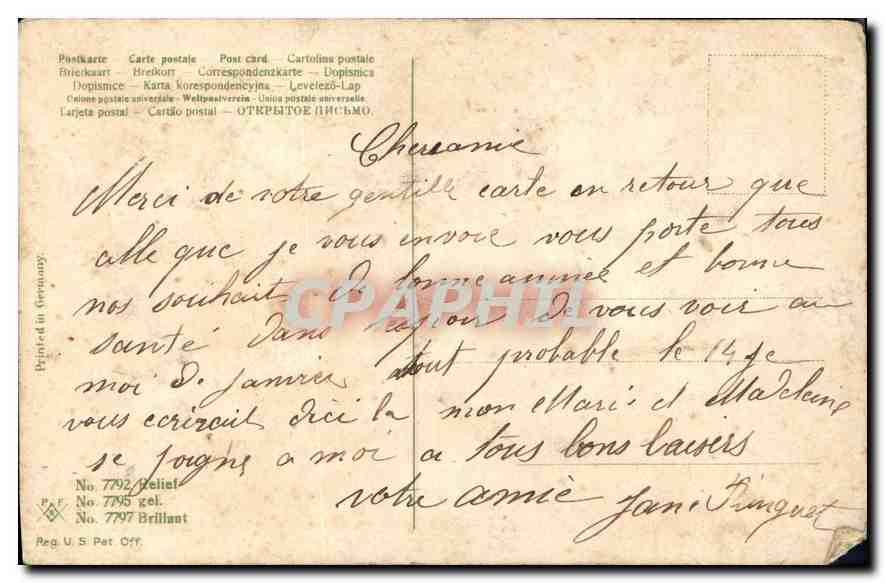 Postkarte Carte postale Post card – Cartolina postale
Brierkaart – Brefkort – Correspondenzkarte – Dopisnica
Dopisnice – Karta korespondencyjna – Levelező-Lap
Unione postale universale – Weltpostverein – Union postale universelle
Tarjeta postal – Cartão postal – ОТКРЫТОЕ ПИСЬМО.
Chereamie
Merci de votre gentille carte en retour que
alle que je vous envoie vous porte tous
nos souhait de bonne année et bonne
santé dans lespoir de vous voir au
moi de Janvier tout probable le 14 je
vous ecrirait dici la mon Mari et Madeleine
se joigne a moi a tous bons baisers
votre amie Jane
Printed in Germany.
No. 7792 Relief
No. 7795 gel.
No. 7797 Brillant
P F B
Reg. U. S. Pat. Off.
CPAPHIL